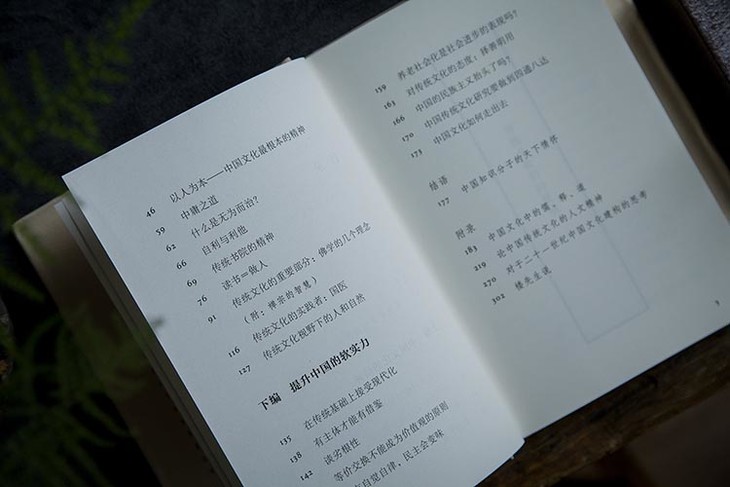 46 以人为本——中国文化最根本的精神
59 中庸之道
62 什么是无为而治?
66 自利与利他
69 传统书院的精神
76 读书=做人
91 传统文化的重要部分:佛学的几个理念
(附:禅宗的智慧)
116 传统文化的实践者:国医
127 传统文化视野下的人和自然
下编 提升中国的软实力
135 在传统基础上接受现代化
138 有主体才能有借鉴
142 谈劣根性
等价交换不能成为价值观的原则
自觉自律,民主会变味
159 养老社会化是社会进步的表现吗?
163 对传统文化的态度:择善明用
166 中国的民族主义又抬头了吗?
170 中国传统文化研究要做到四通八达
173 中国文化如何走出去
结语
177 中国知识分子的天下情怀
附录
183 中国文化中的儒、释、道
219 论中国传统文化的人文精神
270 对于二十一世纪中国文化建构的思考
302 楼先生说
3